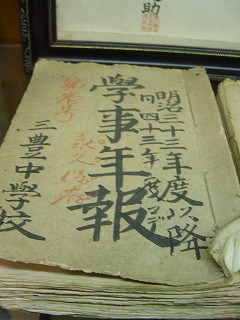 助
明治三十三年度以降
同四十三年度マデ
學事年報
永久保存
三豊中學校